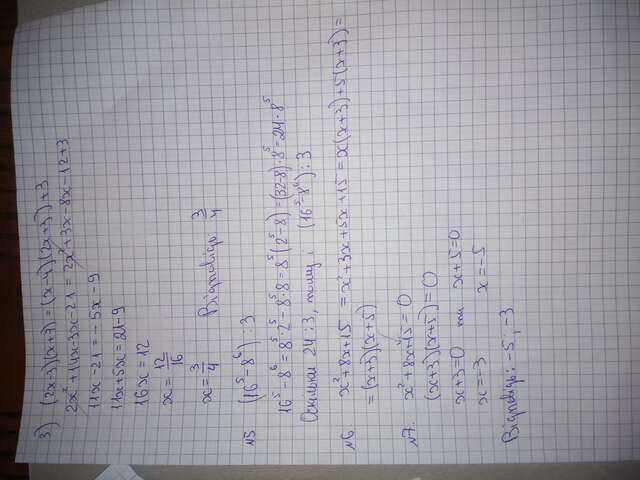 3) (2x-3)(x+7) = (x-4)(2x+3)+3
2x²+14x-3x-21 = 2x²+3x-8x-12+3
11x-21 = -5x-9
11x+5x = 21-9
16x = 12
x = 12/16
x = 3/4 Відповідь: 3/4
№5 (16⁵-8⁶) ⋮ 3
16⁵-8⁶ = 8⁵·2⁵-8⁵·8 = 8⁵(2⁵-8) = (32-8)·8⁵ = 24·8⁵
Оскільки 24 ⋮ 3, тому і (16⁵-8⁶) ⋮ 3
№6 x²+8x+15 = x²+3x+5x+15 = x(x+3)+5(x+3) =
= (x+3)(x+5)
№7. x²+8x+15 = 0
(x+3)(x+5) = 0
x+3=0 та x+5=0
x=-3 x=-5
Відповідь: -5; -3